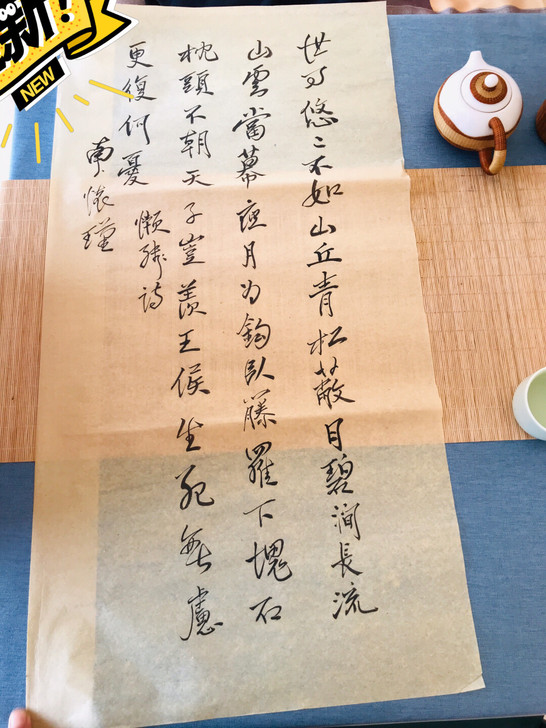 世事悠〻不如山丘青松蔽日碧澗長流
山雲當幕夜月为鈎臥藤蘿下塊石
枕頭不朝天子豈羨王侯生死無慮
更復何憂
懶殘詩
南懷瑾
新!
NEW